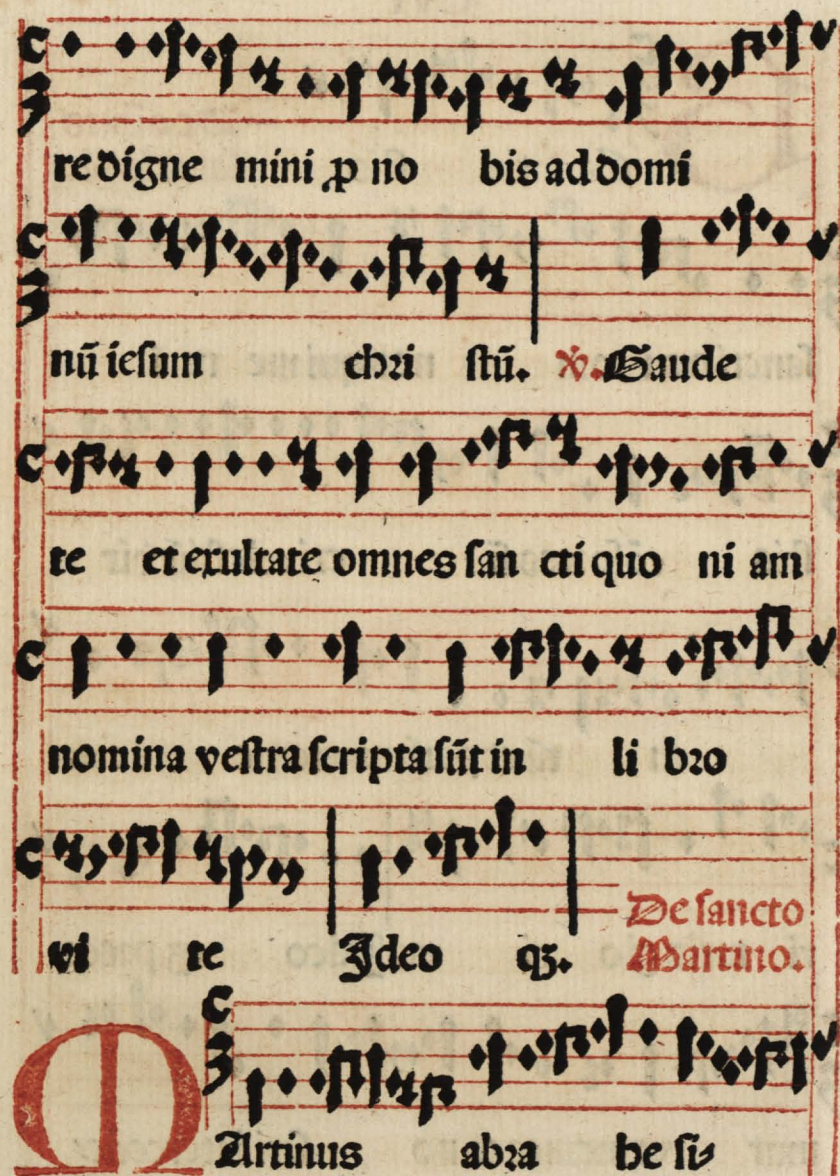 re digne mini ꝑ no bis ad domi
nū iesum chri stū. ℣. Gaude
te et exultate omnes san cti quo ni am
nomina vestra scripta sūt in li bro
vi te Ideo qꝫ. De sancto
Martino.
MArtinus abra he si⸗